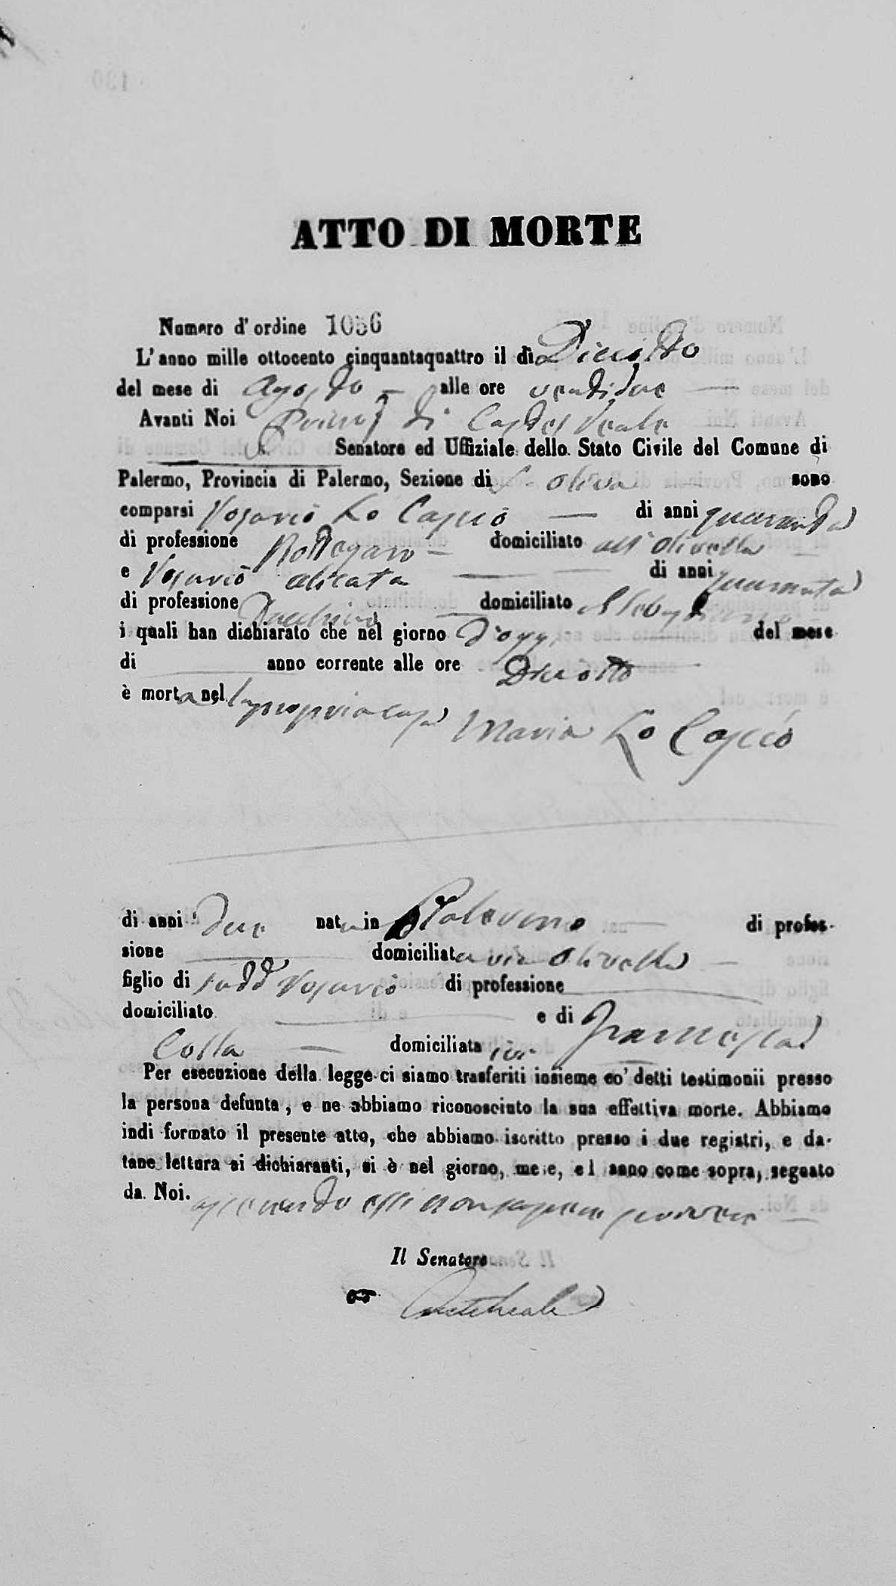 ATTO DI MORTE
Numero d' ordine 1056
L' anno mille ottocento cinquantaquattro il dì Dieciotto
del mese di Agosto alle ore ventidue
Avanti Noi di Castel Reale
Senatore ed Uffiziale dello Stato Civile del Comune di
Palermo, Provincia di Palermo, Sezione di S. Oliva sono
comparsi Rosario Lo Cascio di anni quaranta
di professione Bottegaro domiciliato all' Olivella
e Rosario Alicata di anni quaranta
di professione domiciliato
i quali han dichiarato che nel giorno d'oggi del mese
di anno corrente alle ore Dieciotto
è morta nella propria casa Maria Lo Cascio
di anni due nata in Palermo di profes-
sione domiciliata via Olivella
figlio di Rosario di professione
domiciliato e di Francesca
Colla domiciliata ivi
Per esecuzione della legge ci siamo trasferiti insieme co' detti testimonii presso
la persona defunta, e ne abbiamo riconosciuto la sua effettiva morte. Abbiamo
indi formato il presente atto, che abbiamo iscritto presso i due registri, e da-
tane lettura ai dichiaranti, si è nel giorno, mese, ed anno come sopra, segnato
da Noi. asserendo essi non sapere scrivere
Il Senatore
Castelreale